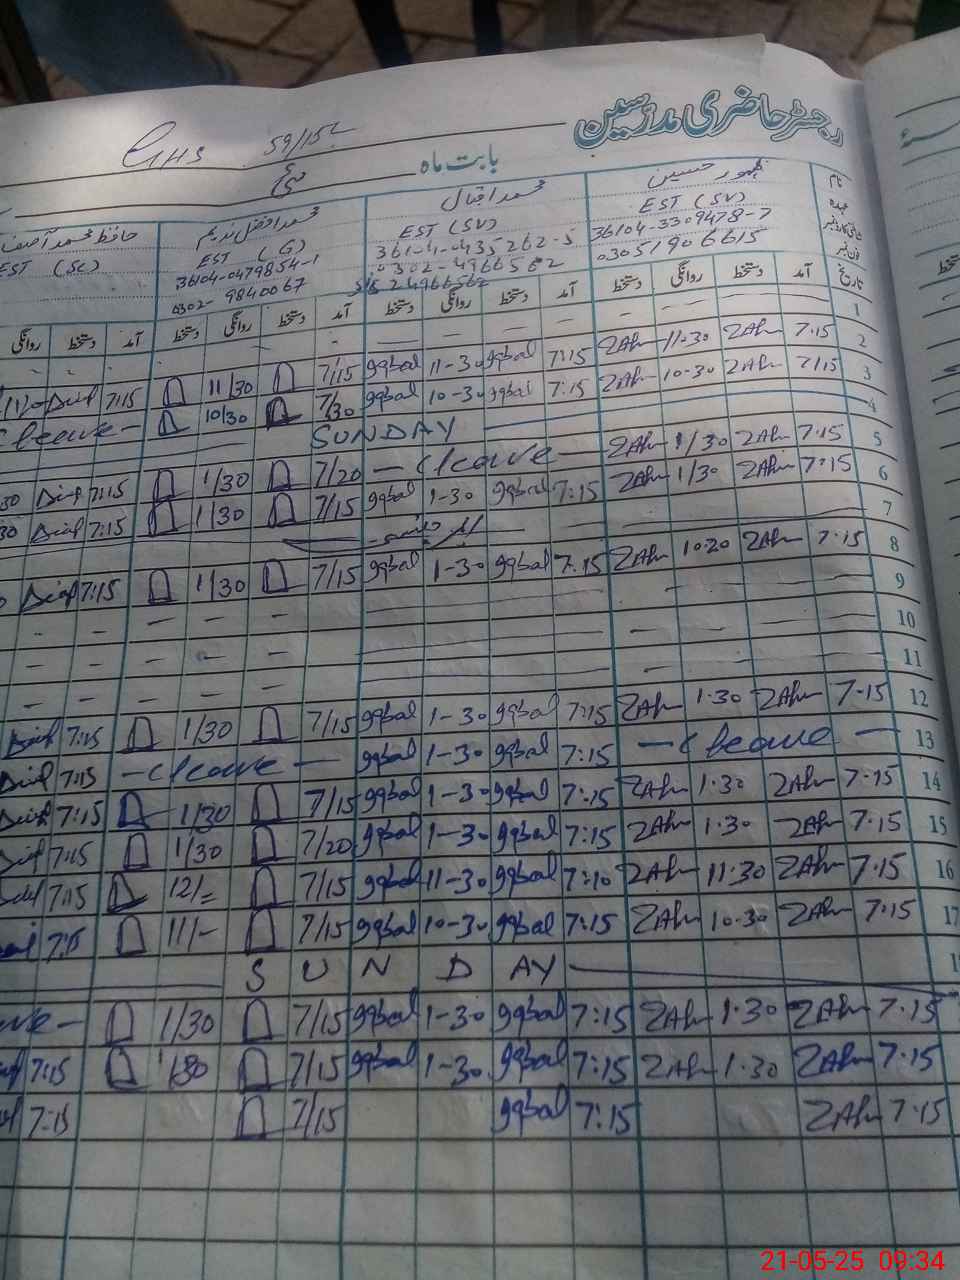 رجسٹر حاضری مدرسین
GHS 59/15L
بابت ماہ مئی
نام ظہور حسین محمد اقبال محمد افضل ندیم حافظ محمد آصف
عہدہ EST (SV) EST (SV) EST (G) EST (SC)
36104-3309478-7 36104-0435262-5 36104-0479854-1
03051906615 0302-4966562 0302-9840067
تاریخ آمد دستخط روانگی دستخط آمد دستخط روانگی دستخط آمد دستخط روانگی دستخط آمد دستخط روانگی
1 - - - - - - - -
2 7.15 ZAh 11.30 ZAh 7:15 Iqbal 11-30 Iqbal 7/15 11/30 7:15
3 7/15 ZAh 10-30 ZAh 7:15 Iqbal 10-30 Iqbal 7/30 10/30 C leave -
4 SUNDAY
5 7.15 ZAh 1/30 ZAh - C leave - 7/20 1/30 7:15
6 7:15 ZAh 1/30 ZAh 7:15 Iqbal 1-30 Iqbal 7/15 1/30 7:15
7
8 7.15 ZAh 10.20 ZAh 7:15 Iqbal 1-30 Iqbal 7/15 1/30 7:15
9 - - - -
10 - - - -
11 - - - -
12 7.15 ZAh 1.30 ZAh 7:15 Iqbal 1-30 Iqbal 7/15 1/30 7:15
13 - C leave - 7:15 Iqbal 1-30 Iqbal - C leave - 7:15
14 7.15 ZAh 1.30 ZAh 7:15 Iqbal 1-30 Iqbal 7/15 1/30 7:15
15 7.15 ZAh 1.30 ZAh 7:15 Iqbal 1-30 Iqbal 7/20 1/30 7:15
16 7.15 ZAh 11.30 ZAh 7:10 Iqbal 11-30 Iqbal 7/15 12/= 7:15
17 7.15 ZAh 10.30 ZAh 7:15 Iqbal 10-30 Iqbal 7/15 11/- 7:15
SUNDAY
7.15 ZAh 1.30 ZAh 7:15 Iqbal 1-30 Iqbal 7/15 1/30
7.15 ZAh 1.30 ZAh 7:15 Iqbal 1-30 Iqbal 7/15 1/30 7:15
7.15 ZAh 7:15 Iqbal 7/15 7:15
21-05-25 09:34